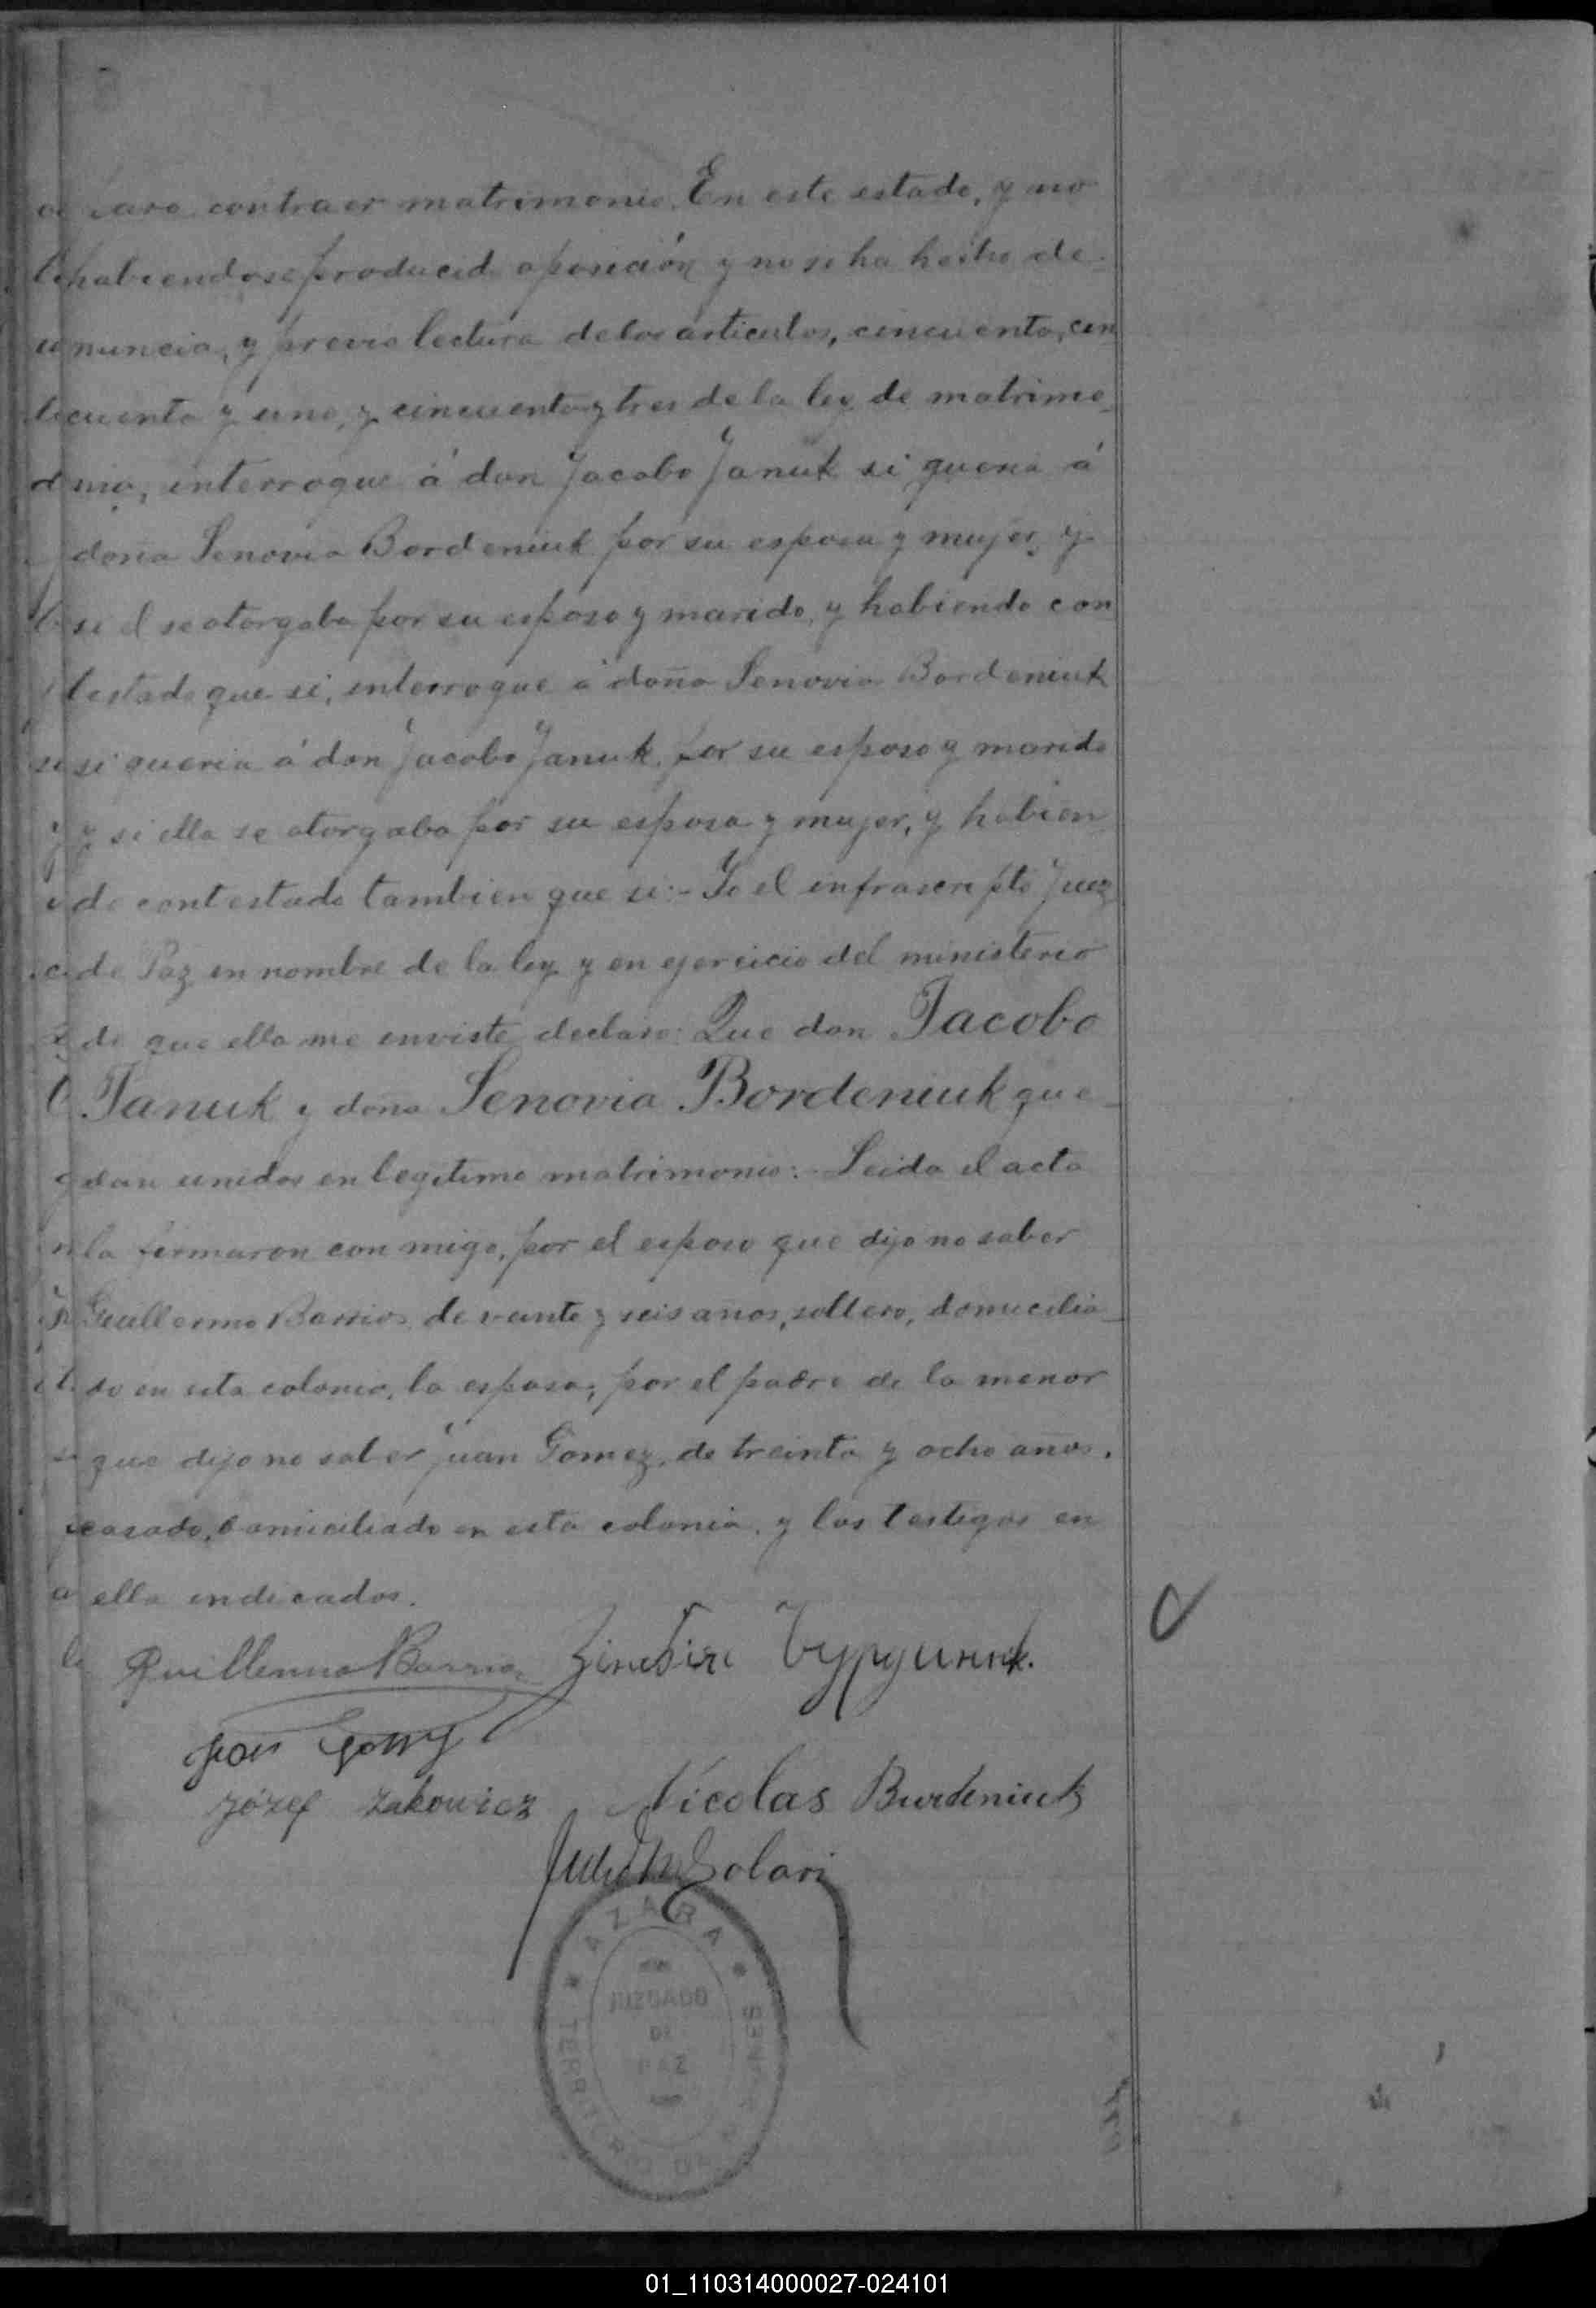 para contraer matrimonio. En este estado, y no
habiendose producido oposición y no se ha hecho de-
nuncia, y previa lectura de los articulos, cincuenta, cin
cuenta y uno, y cincuenta y tres de la ley de matrimo-
nio, interrogue á don Jacobo Januk si queria á
doña Senovia Bordeniuk por su esposa y mujer, y
si el se otorgaba por su esposo y marido, y habiendo con
testado que si, interrogue á doña Senovia Bordeniuk
si queria á don Jacobo Januk, por su esposo y marido
y si ella se otorgaba por su esposa y mujer, y habien
do contestado tambien que si:- Yo el infrascripto Juez
de Paz en nombre de la ley y en ejercicio del ministerio
de que ella me enviste declaro: Que don Jacobo
Januk y doña Senovia Bordeniuk que-
dan unidos en legitimo matrimonio:- Leida el acta
la firmaron con migo, por el esposo que dijo no saber
Guillermo Barrios de veinte y seis años, soltero, domicilia-
do en esta colonia, la esposa, por el padre de la menor
que dijo no saber Juan Gomez, de treinta y ocho años,
casado, domiciliado en esta colonia, y los testigos en
ella indicados.
Guillermo Barrios
Juan Gomez
Józef Zakowicz Nicolas Burdeniuk
Solari
AZARA
JUZGADO
DE
PAZ
TERRITORIO DE MISIONES
01_110314000027-024101